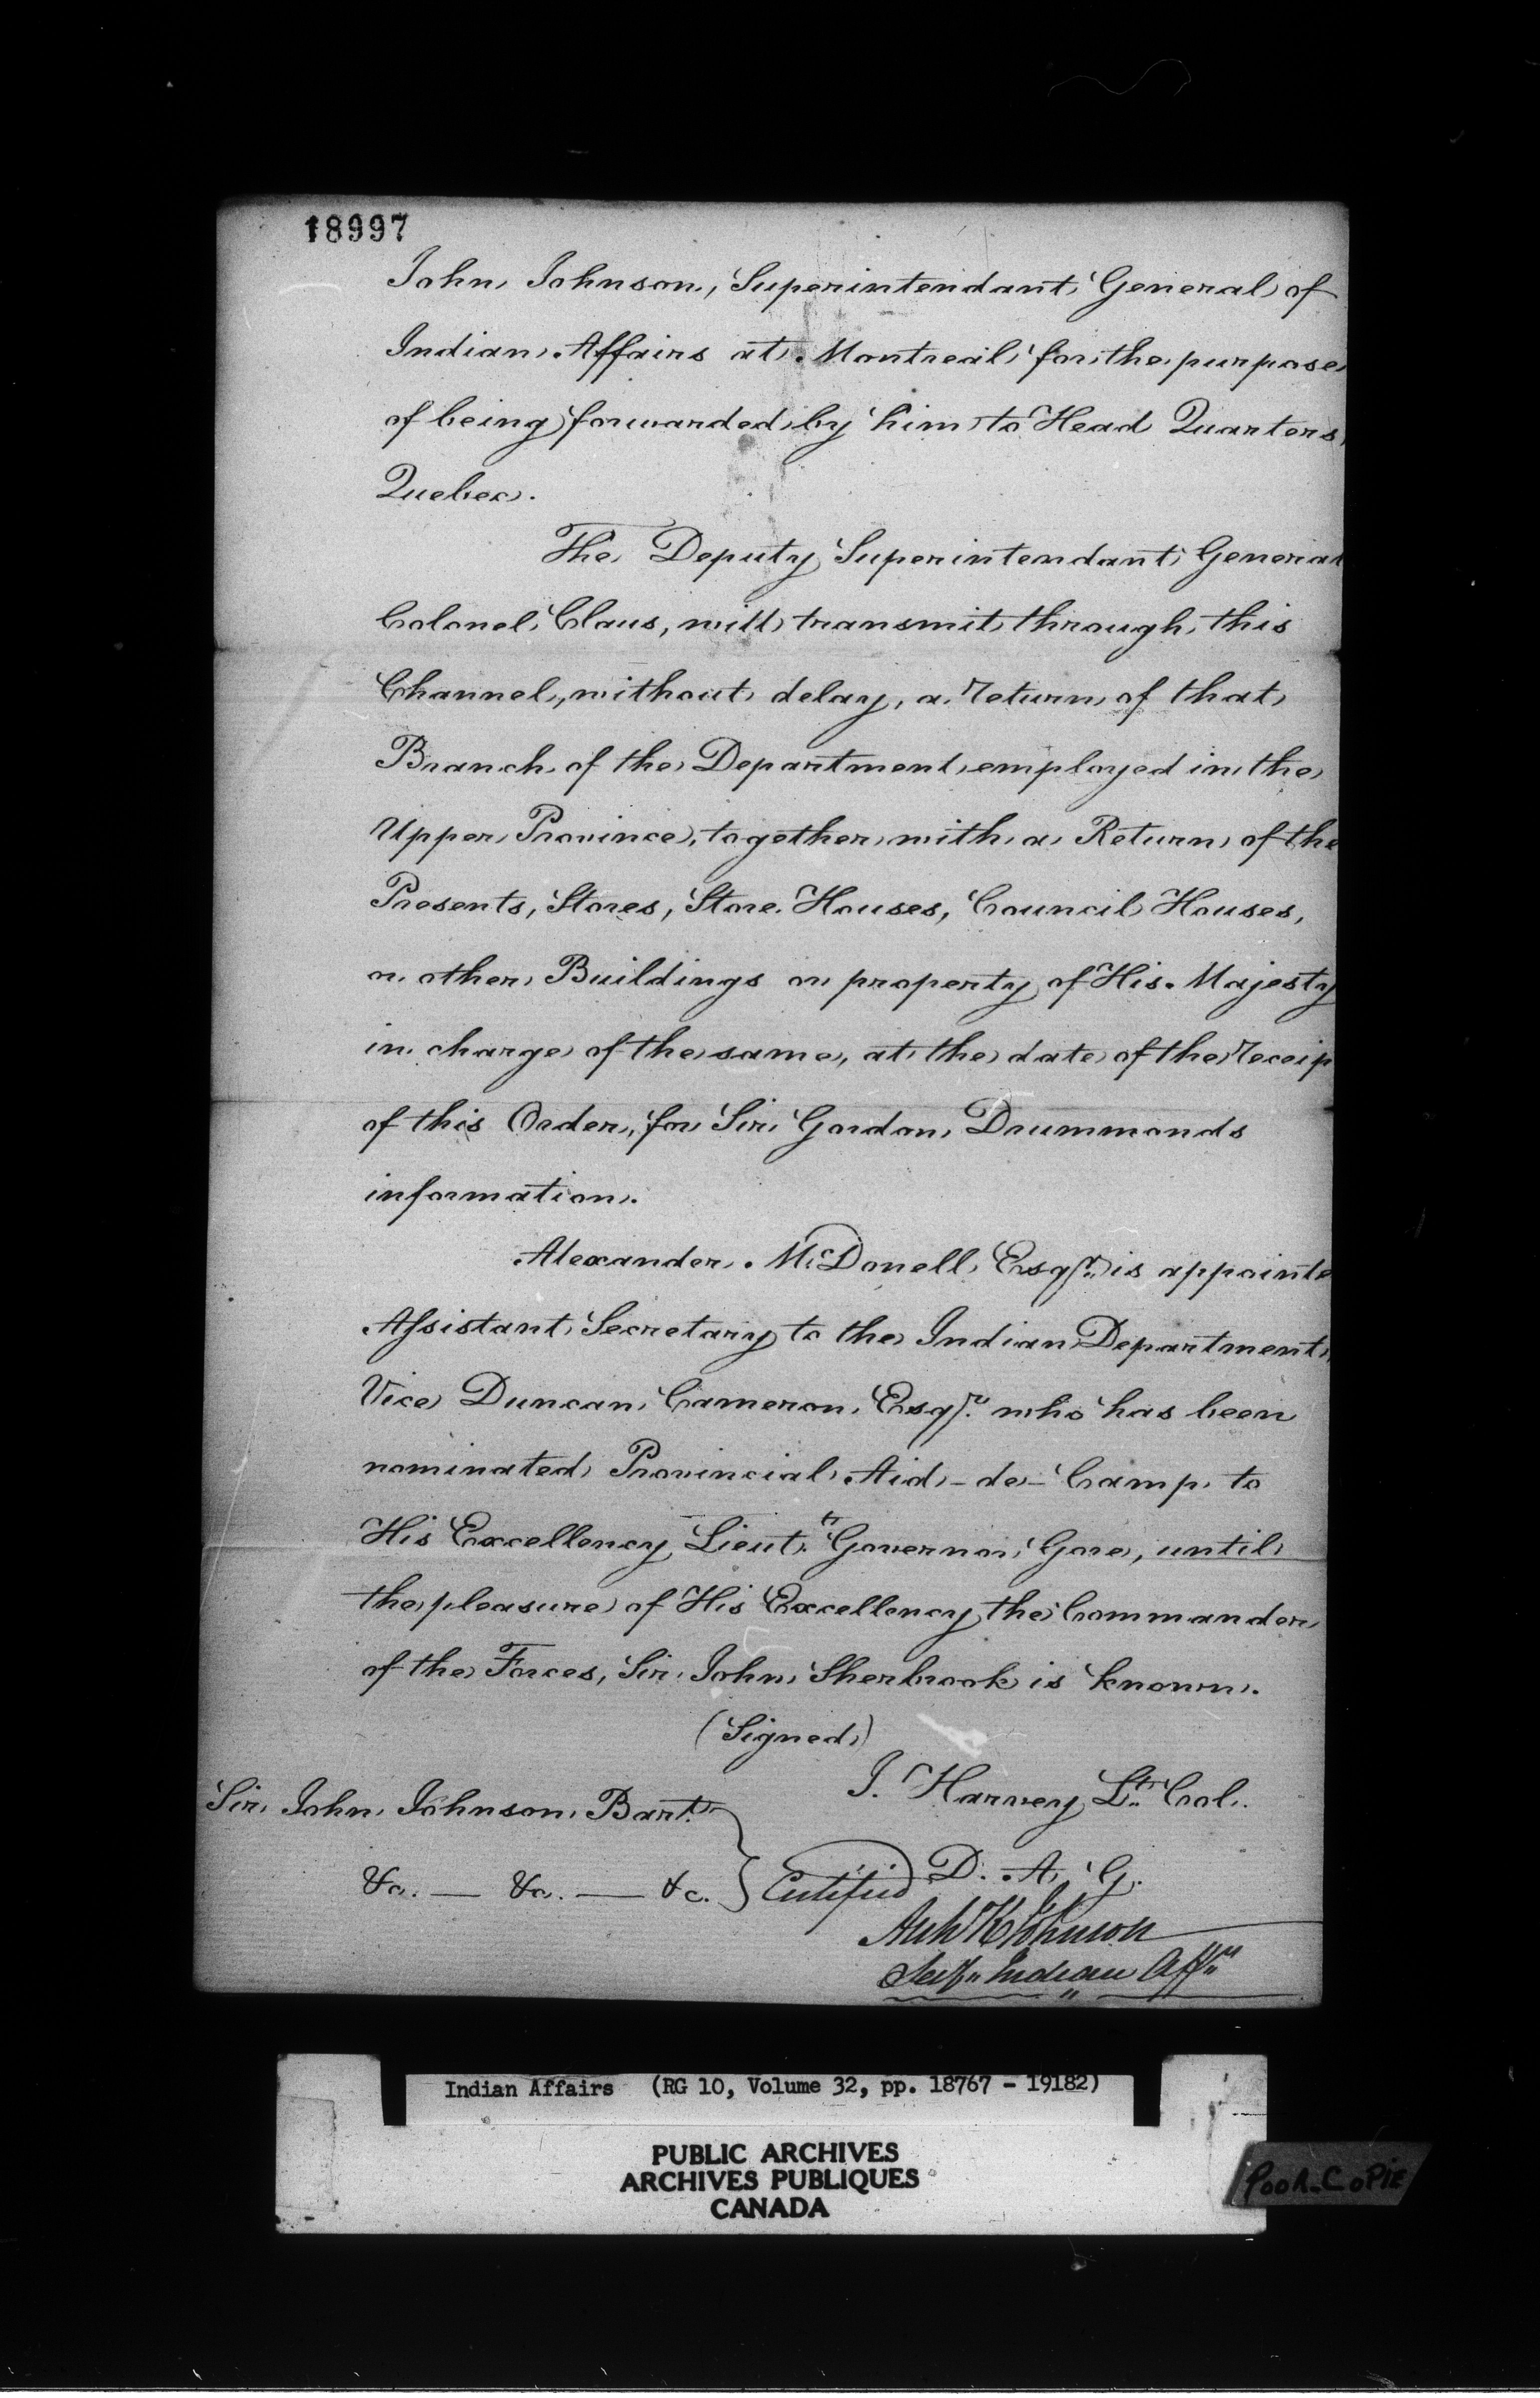 18997
John Johnson, Superintendant General of
Indian Affairs at Montreal for the purpose
of being forwarded by him to Head Quarters
Quebec.
The Deputy Superintendant General
Colonel Claus, will transmit through this
Channel, without delay, a return of that
Branch of the Department employed in the
Upper Province, together with a Return of the
Presents, Stores, Store Houses, Council Houses,
or other Buildings or property of His Majesty
in charge of the same, at the date of the receip
of this Order, for Sir Gordon Drummonds
information.
Alexander McDonell Esqr. is appointe
Assistant Secretary to the Indian Department
Vice Duncan Cameron Esqr. who has been
nominated Provincial Aid-de-Camp to
His Excellency Lieut. Governor Gore, until
the pleasure of His Excellency the Commander
of the Forces, Sir John Sherbrook is known.
(Signed)
J. Harvey Lt. Col.
Sir John Johnson Bart.
D. A. G.
&c. — &c. — &c. } Certified
Johnson
Indian Affrs
Indian Affairs (RG 10, Volume 32, pp. 18767 - 19182)
PUBLIC ARCHIVES
ARCHIVES PUBLIQUES
CANADA
POOR COPIE